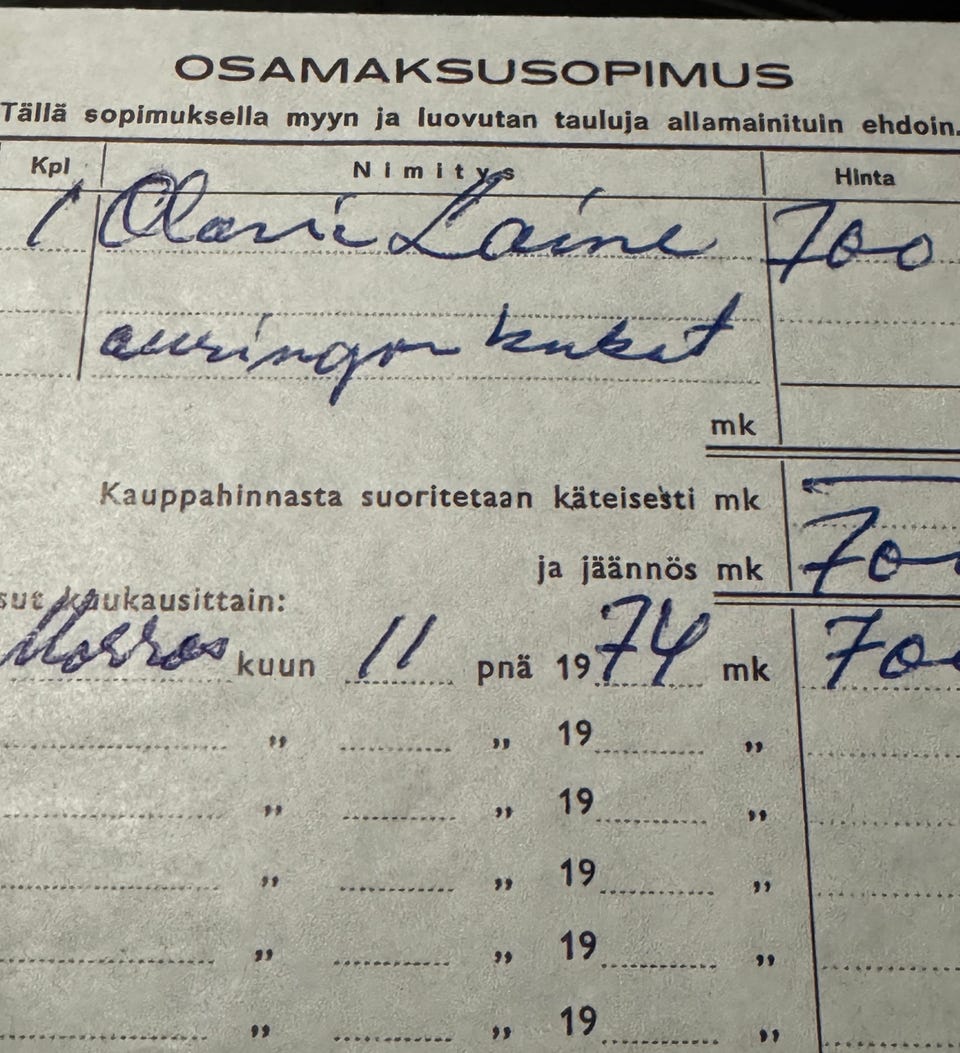 OSAMAKSUSOPIMUS
Tällä sopimuksella myyn ja luovutan tauluja allamainituin ehdoin.
Kpl Nimitys Hinta
1 Olavi Laine 700
auringon kukat
mk
Kauppahinnasta suoritetaan käteisesti mk
ja jäännös mk 700
sut kuukausittain:
Marras kuun 11 pnä 1974 mk 700
„ „ 19 „
„ „ 19 „
„ „ 19 „
„ „ 19 „
„ „ 19 „